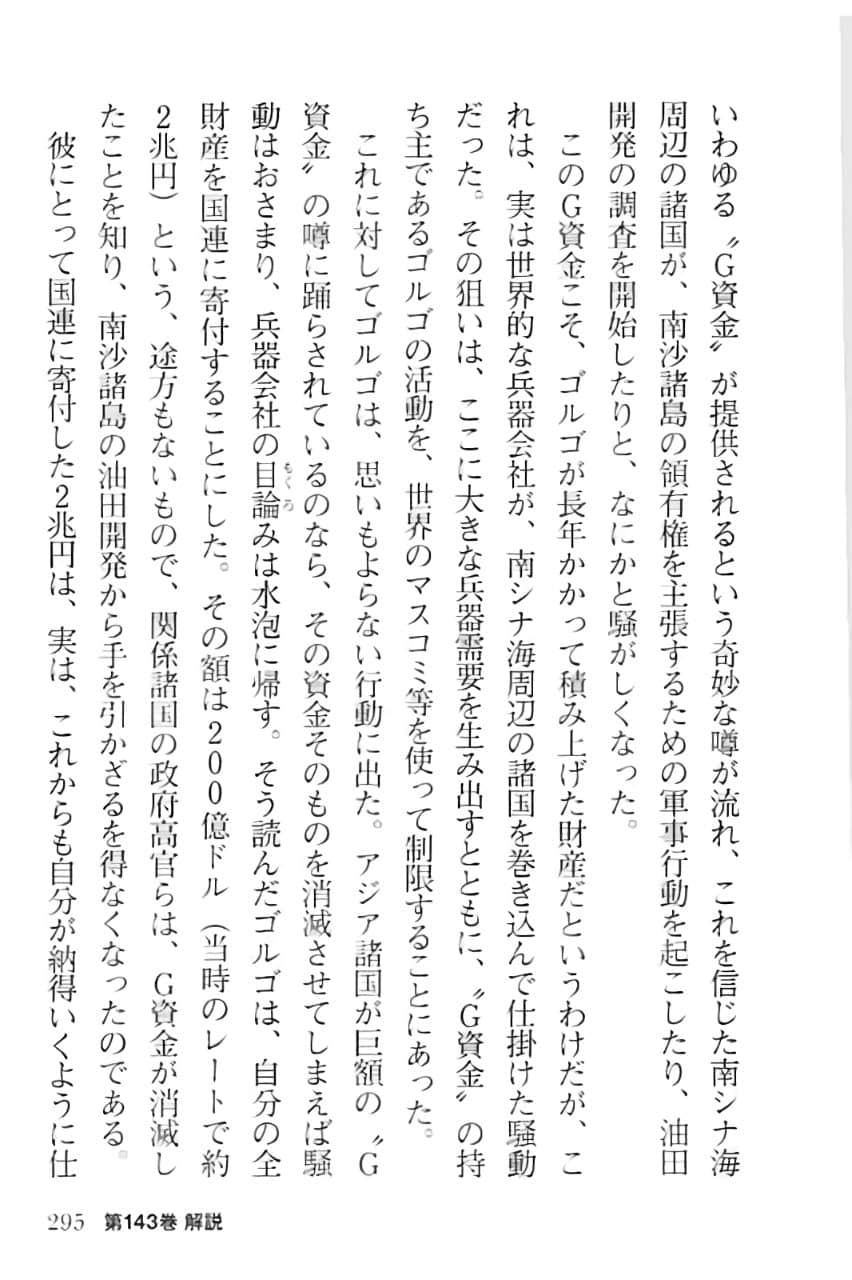 いわゆる〝G資金〟が提供されるという奇妙な噂が流れ、これを信じた南シナ海
周辺の諸国が、南沙諸島の領有権を主張するための軍事行動を起こしたり、油田
開発の調査を開始したりと、なにかと騒がしくなった。
このG資金こそ、ゴルゴが長年かかって積み上げた財産だというわけだが、こ
れは、実は世界的な兵器会社が、南シナ海周辺の諸国を巻き込んで仕掛けた騒動
だった。その狙いは、ここに大きな兵器需要を生み出すとともに、〝G資金〟の持
ち主であるゴルゴの活動を、世界のマスコミ等を使って制限することにあった。
これに対してゴルゴは、思いもよらない行動に出た。アジア諸国が巨額の〝G
資金〟の噂に踊らされているのなら、その資金そのものを消滅させてしまえば騒
動はおさまり、兵器会社の目論みは水泡に帰す。そう読んだゴルゴは、自分の全
もくろ
財産を国連に寄付することにした。その額は200億ドル（当時のレートで約
2兆円）という、途方もないもので、関係諸国の政府高官らは、G資金が消滅し
たことを知り、南沙諸島の油田開発から手を引かざるを得なくなったのである。
彼にとって国連に寄付した2兆円は、実は、これからも自分が納得いくように仕
295 第143巻 解説